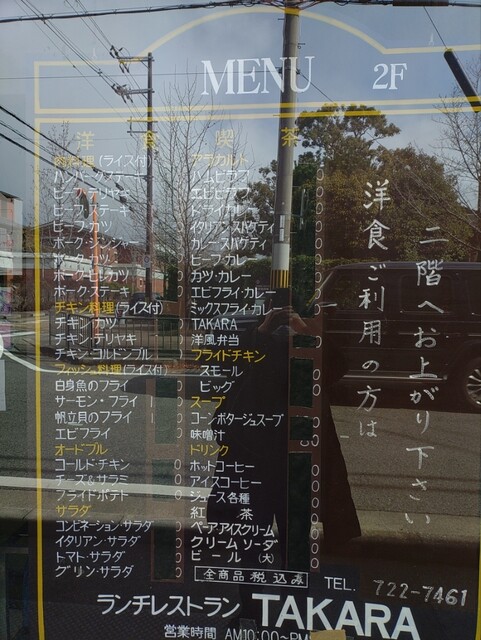 MENU 2F
洋食 喫茶
肉料理(ライス付)
ハンバーグステーキ
ビーフ・テリヤキ
ビーフ・ステーキ
ビーフ・カツ
ポーク・ジンジャー
ポーク・カツ
ポーク・ピカツ
ポーク・ステーキ
チキン料理(ライス付)
チキン・カツ
チキン・テリヤキ
チキン・コルドンブルー
フィッシュ料理(ライス付)
白身魚のフライ
サーモン・フライ
帆立貝のフライ
エビフライ
オードブル
コールド・チキン
チーズ&サラミ
フライドポテト
サラダ
コンビネーション・サラダ
イタリアン・サラダ
トマト・サラダ
グリン・サラダ
アラカルト
ハムピラフ
エビピラフ
ドライカレー
イタリアンスパゲティ
カレースパゲティ
ビーフ・カレー
カツ・カレー
エビフライ・カレー
ミックスフライ・カレー
TAKARA
洋風弁当
フライドチキン
スモール
ビッグ
スープ
コーンポタージュスープ
味噌汁
ドリンク
ホットコーヒー
アイスコーヒー
ジュース各種
紅茶
ペアーアイスクリーム
クリームソーダ
ビール (大)
全商品税込み
洋食ご利用の方は
二階へお上がり下さい
TEL. 722-7461
ランチレストラン TAKARA
営業時間 AM10:00~PM